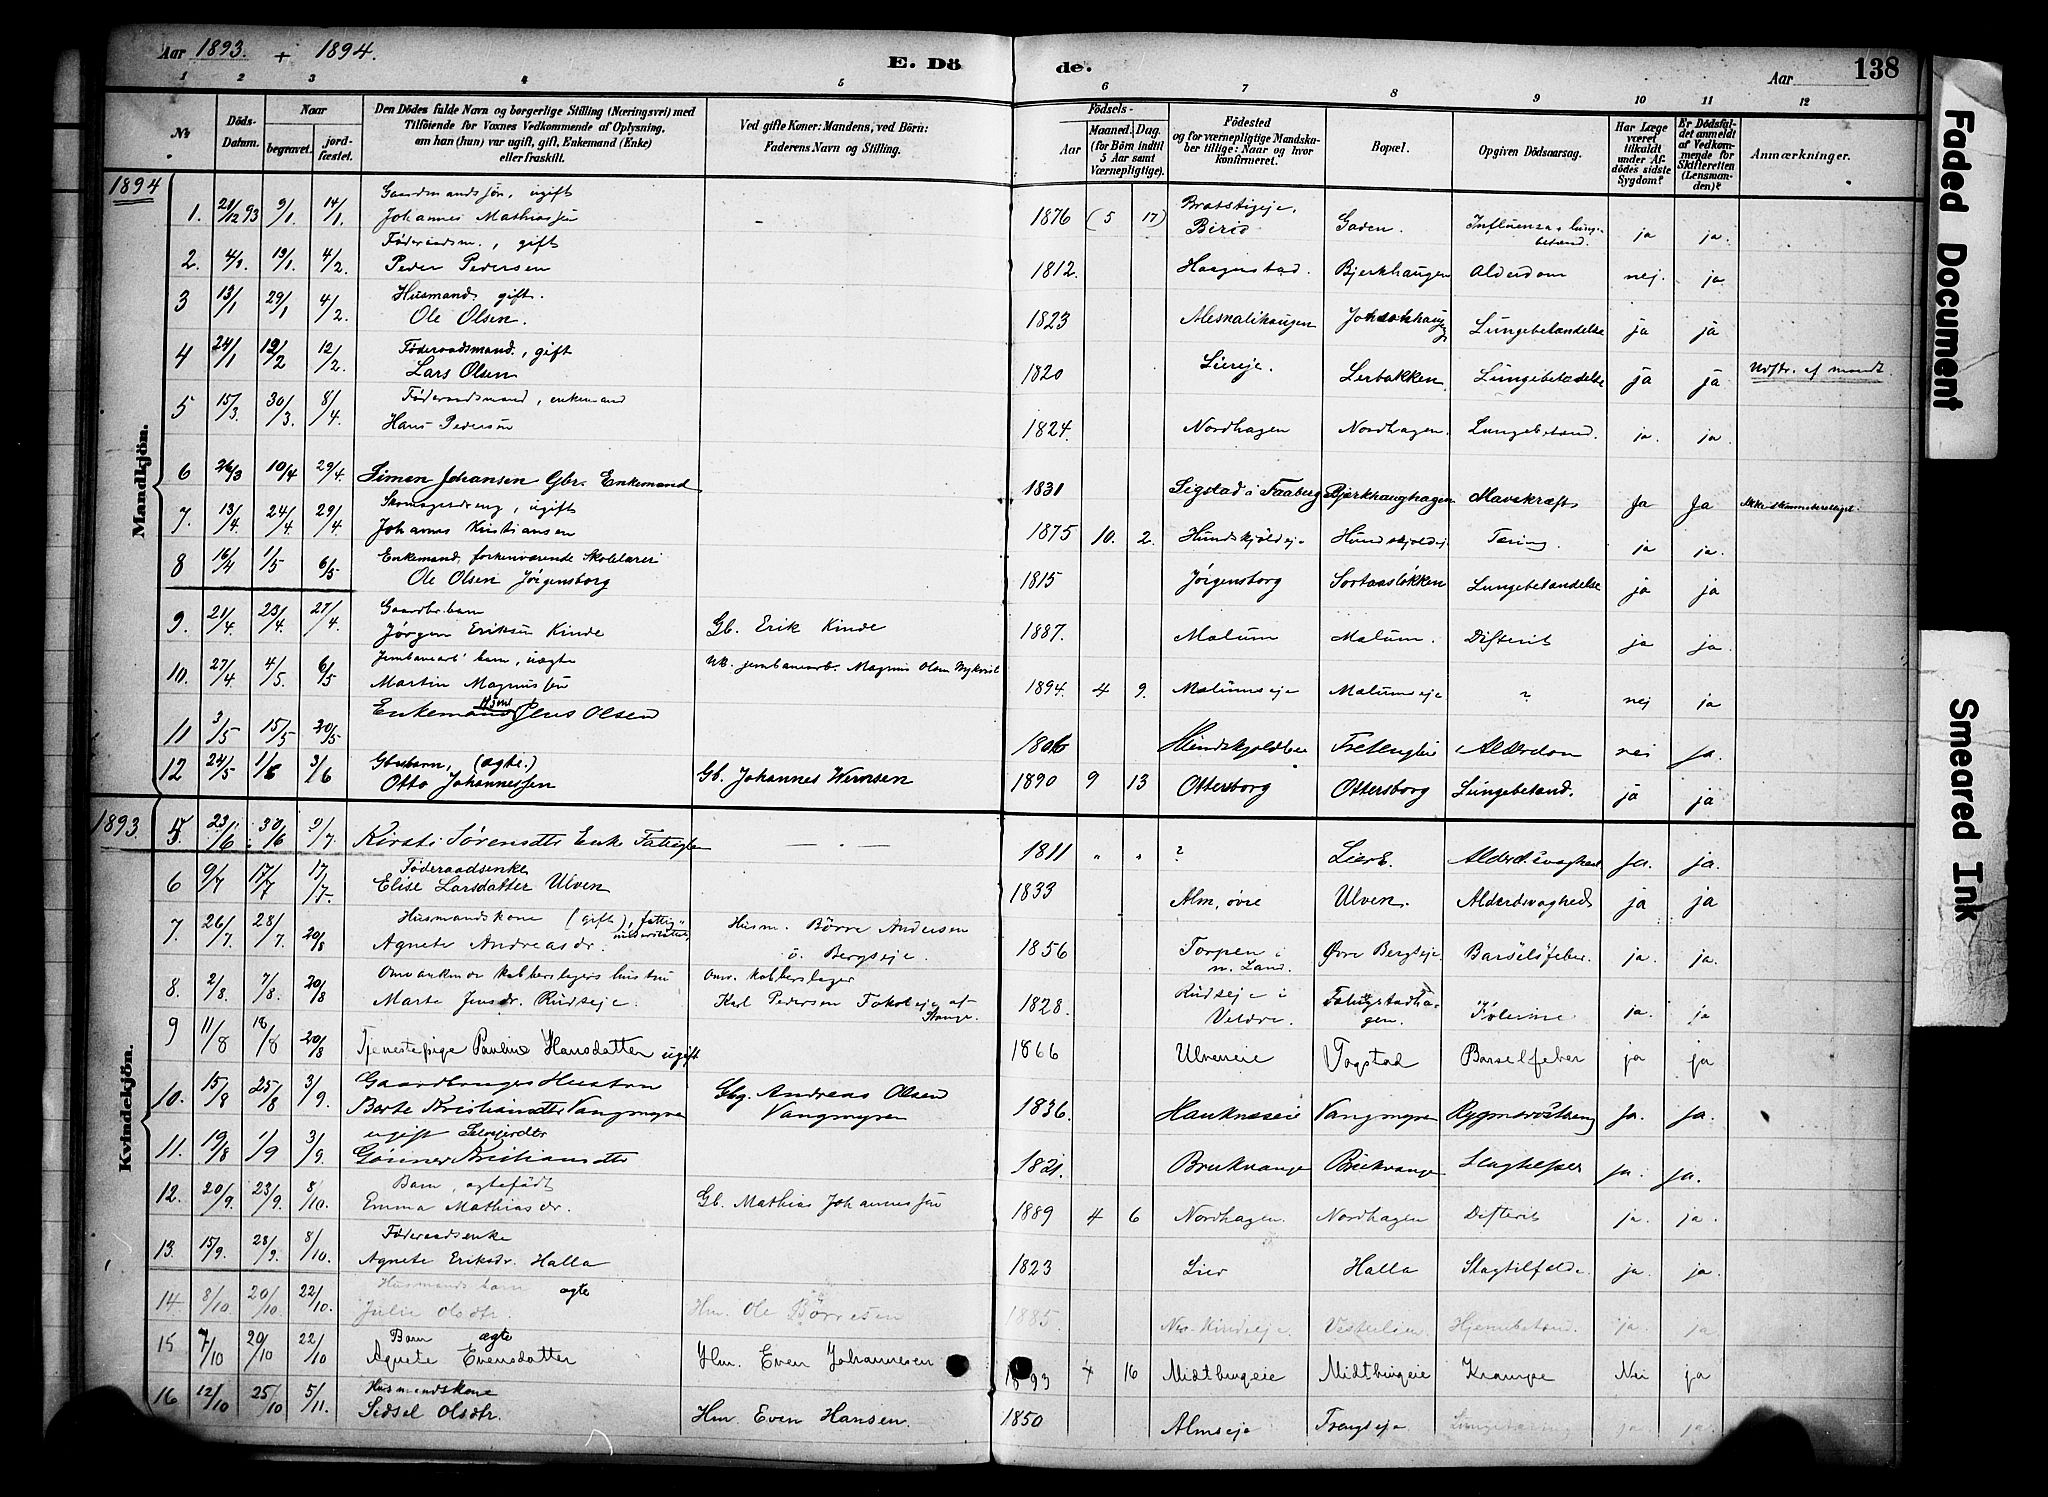 Aar 1893 + 1894.
E. Dö de.
Aar 138
1 2 3 4 5 6 7 8 9 10 11 12
No
Döds-Datum.
Naar begravet. jordfæstet.
Den Dödes fulde Navn og borgerlige Stilling (Næringsvei) med Tilföiende for Voxnes Vedkommende af Oplysning, om han (hun) var ugift, gift, Enkemand (Enke) eller fraskilt.
Ved gifte Koner: Mandens, ved Börn: Faderens Navn og Stilling.
Födsels- Aar Maaned. Dag. (for Börn indtil 5 Aar samt Værnepligtige).
Födested og for værnepligtige Mandskaber tillige: Naar og hvor konfirmeret.
Bopæl.
Opgiven Dödsaarsag.
Har Læge været tilkaldt under Afdödes sidste Sygdom?
Er Dödsfaldet anmeldt af Vedkommende for Skifteretten (Lensmanden)?
Anmærkninger.
Mandkjön.
1894
1. 21/12 93 9/1 14/1 Gaardmandssøn, ugift Johannes Mathiassen 1876 (5 17) Birid Gaden. Influenza ja ja.
2. 4/1 19/1 4/2 Føderaadsm., gift Peder Pedersen 1812. Haagenstad. Bjerkhaugen Alderdom nej. ja
3 13/1 29/1 4/2. Husmand gift. Ole Olsen. 1823 Lungebetændelse ja ja
4 24/1 12/2 12/2. Føderaadsmand, gift Lars Olsen 1820 Liereje. Lerbakken Lungebetændelse ja ja
5 15/3. 30/3. 8/4 Føderaadsmand, enkemand Hans Pedersen 1824. Nordhagen Nordhagen. Lungebetænd. ja. ja
6 26/3 10/4 29/4. Simen Johansen Gbr. Enkemand 1831 Sigstad i Faaberg Bjørkhaughagen Mavekræft Ja Ja
7. 13/4 24/4 29/4 ugift Johannes Kristiansen 1875 10. 2. Hundskjoldeje Hundskjoldej Tæring ja ja.
8 16/4 1/5 6/5 Enkemand, forhenværende Skolelærer Ole Olsen Jørgensborg 1815 Jørgensborg Sortaasløkken Lungebetændelse ja ja
9. 21/4. 23/4. 27/4 Gaardbr. barn Jørgen Eriksen Kinde Gb. Erik Kinde 1887. Malum Malum. Difterit ja ja.
10. 27/4 4/5. 6/5 Jernbanearb. barn, uægte Martin Magnussen Uk. jernbanearb. Magnus Olsen Nykvist 1894. 4 9. Malumseje Malumseje ? nej ja
11 3/5 15/5 20/5 Enkemand Jens Olsen 1806 Alderdom nei ja.
12 24/5 1/6 3/6 Gbr. barn, (ægte.) Otto Johannessen Gb. Johannes Wermsen 1890 9 13 Ottersborg Ottersborg Lungebetænd. ja ja
Kvindekjön.
1893.
5. 23/6 30/6 9/7. Kirsti Sørensdtr Enke Fattiglem — . — 1811 " " ? LierE. Alderdsvaghed Ja. ja.
6 9/7 17/7 17/7. Føderaadsenke Elise Larsdatter Ulven 1833 Alm, øvre Ulven. Alderdsvaghed ja ja
7. 26/7. 28/7. 20/8 Husmandskone (gift), fattigunderstøttet Agnete Andreasdr. Husm. Børre Andersen ö. Bergseje. 1856 Torpen i n. Land. Øvre Bergseje Barselsfeber. ja. ja.
8. 2/8. 7/8. 20/8 Omvankende kobberslagers hustru Marte Jensdr. Rudseje. Omv. kobberslager Karl Pedersen Stange. 1828. Rudseje i Veldre. ja. ja
9 11/8 18/8 20/8 Tjenestepige Pauline Hansdatter ugift 1866 Ulveneie Fogstad Barselfeber ja ja
10. 15/8 25/8 3/9. Gaardbrugers Hustru Berte Kristiansdtr Vangmyren Gbg. Andreas Olsen Vangmyren 1836. Vangmyren Rygmarvstæring Ja. ja.
11. 19/8 1/9 3/9. ugift Gunner Kristiansdtr 1821. Brukvange Brukvange ja. ja.
12. 20/9. 23/9. 8/10. Barn, ægtefödt Emma Mathiasdr. Gb. Mathias Johannessen 1889 4 6 Nordhagen. Nordhagen Difterit ja. ja.
13. 15/9. 28/9. 8/10. Føderaadsenke Agnete Eriksdr. Halla 1823 Lier Halla Slagtilfælde ja. ja.
14 8/10 20/10 22/10. Husmands barn ægte Julie Olsdtr. Hm. Ole Børresen 1885. Hjernebetænd. ja ja
15 7/10 20/10 22/10 Barn ægte Agnete Evensdatter Hm. Even Johannesen 1893 4 16 Midtbrugeie Midtbrugeie Krampe Nei ja
16 12/10 25/10 5/11. Husmandskone Sidsel Olsdtr. Hm. Even Hansen. 1850 Almseje Trengseje ja ja.
Faded Document
Smeared Ink